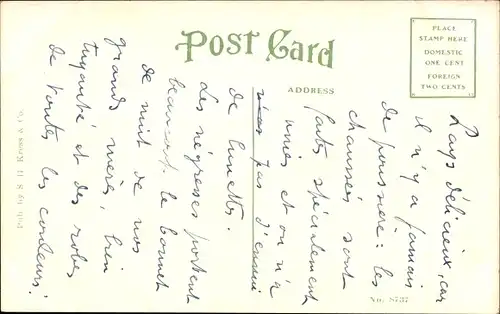 Post Card
ADDRESS
PLACE
STAMP HERE
DOMESTIC
ONE CENT
FOREIGN
TWO CENTS
Pays délicieux, car
il n'y a jamais
de poussière: les
chaussés sont
faites spécialement
unies et on n'a
pas d'ennui
de lunettes.
Les négresses portent
beaucoup le bonnet
de nuit de nos
grands mères, bien
tuyauté et des robes
de toutes les couleurs.
Pub. by S. H. Kress & Co.
No. 8737